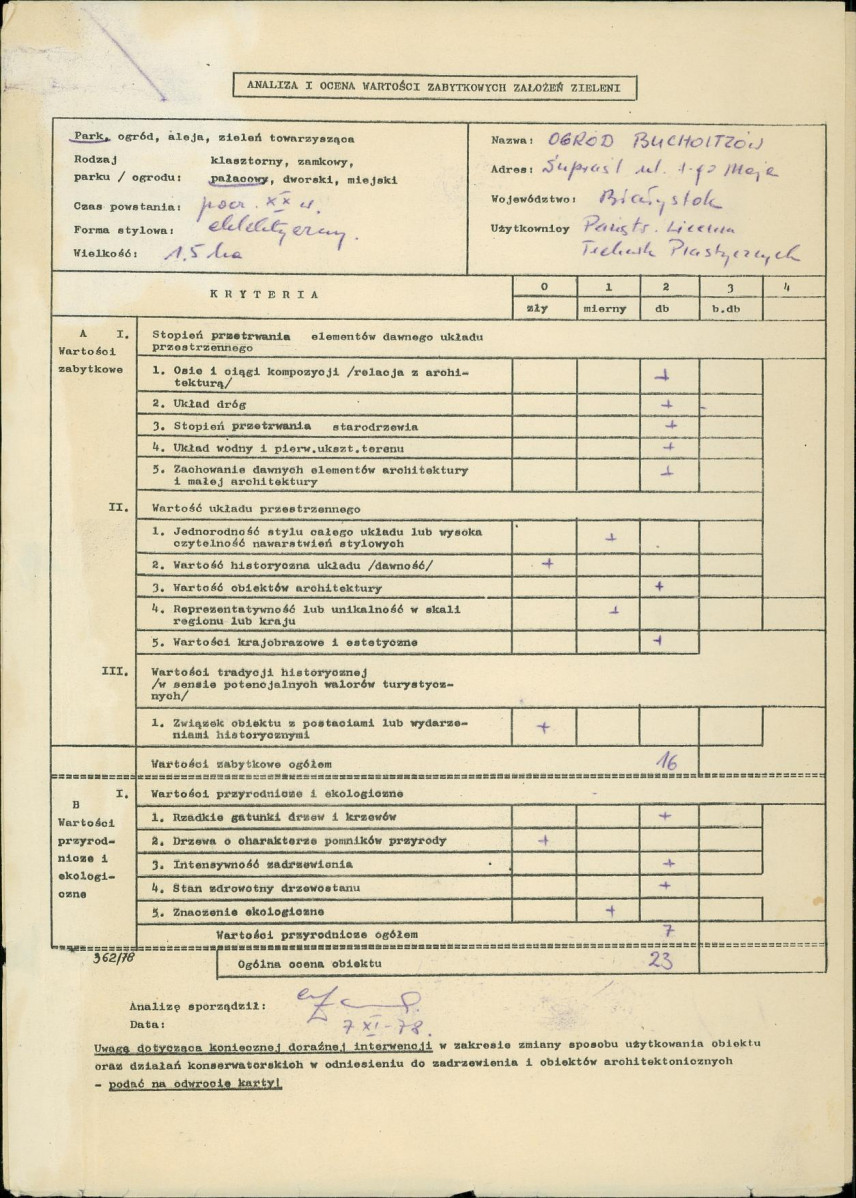 ANALIZA I OCENA WARTOŚCI ZABYTKOWYCH ZAŁOŻEŃ ZIELENI
Park, ogród, aleja, zieleń towarzysząca
Rodzaj klasztorny, zamkowy,
parku / ogrodu: pałacowy, dworski, miejski
Czas powstania: pocz. XX w.
Forma stylowa: eklektyczny.
Wielkość: 1,5 ha
Nazwa: OGRÓD BUCHOLTZÓW
Adres: Supraśl ul. 1-go Maja
Województwo: Białystok
Użytkownicy Państw. Liceum
Technik Plastycznych
KRYTERIA
0 1 2 3 4
zły mierny db b.db
A I. Stopień przetrwania elementów dawnego układu
Wartości przestrzennego
zabytkowe
1. Osie i ciągi kompozycji /relacja z archi-
tekturą/ +
2. Układ dróg +
3. Stopień przetrwania starodrzewia +
4. Układ wodny i pierw.ukszt.terenu +
5. Zachowanie dawnych elementów architektury
i małej architektury +
II. Wartość układu przestrzennego
1. Jednorodność stylu całego układu lub wysoka
czytelność nawarstwień stylowych +
2. Wartość historyczna układu /dawność/ +
3. Wartość obiektów architektury +
4. Reprezentatywność lub unikalność w skali
regionu lub kraju +
5. Wartości krajobrazowe i estetyczne +
III. Wartości tradycji historycznej
/w sensie potencjalnych walorów turystycz-
nych/
1. Związek obiektu z postaciami lub wydarze-
niami historycznymi +
Wartości zabytkowe ogółem 16
B I. Wartości przyrodnicze i ekologiczne
Wartości
przyrod-
nicze i
ekologi-
czne
1. Rzadkie gatunki drzew i krzewów +
2. Drzewa o charakterze pomników przyrody +
3. Intensywność zadrzewienia +
4. Stan zdrowotny drzewostanu +
5. Znaczenie ekologiczne +
Wartości przyrodnicze ogółem 7
362/78
Ogólna ocena obiektu 23
Analizę sporządził:
Data: 7 XI-78.
Uwagę dotyczącą koniecznej doraźnej interwencji w zakresie zmiany sposobu użytkowania obiektu
oraz działań konserwatorskich w odniesieniu do zadrzewienia i obiektów architektonicznych
- podać na odwrocie karty!